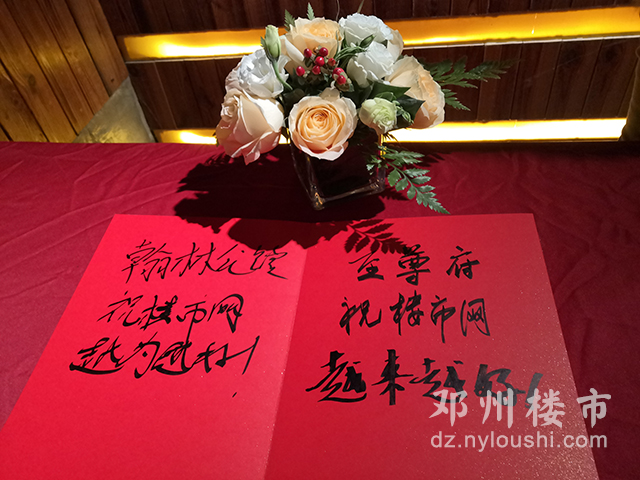 翰林公馆
祝楼市网
越办越好!
至尊府
祝楼市网
越来越好!
邓州楼市
dz.nyloushi.com